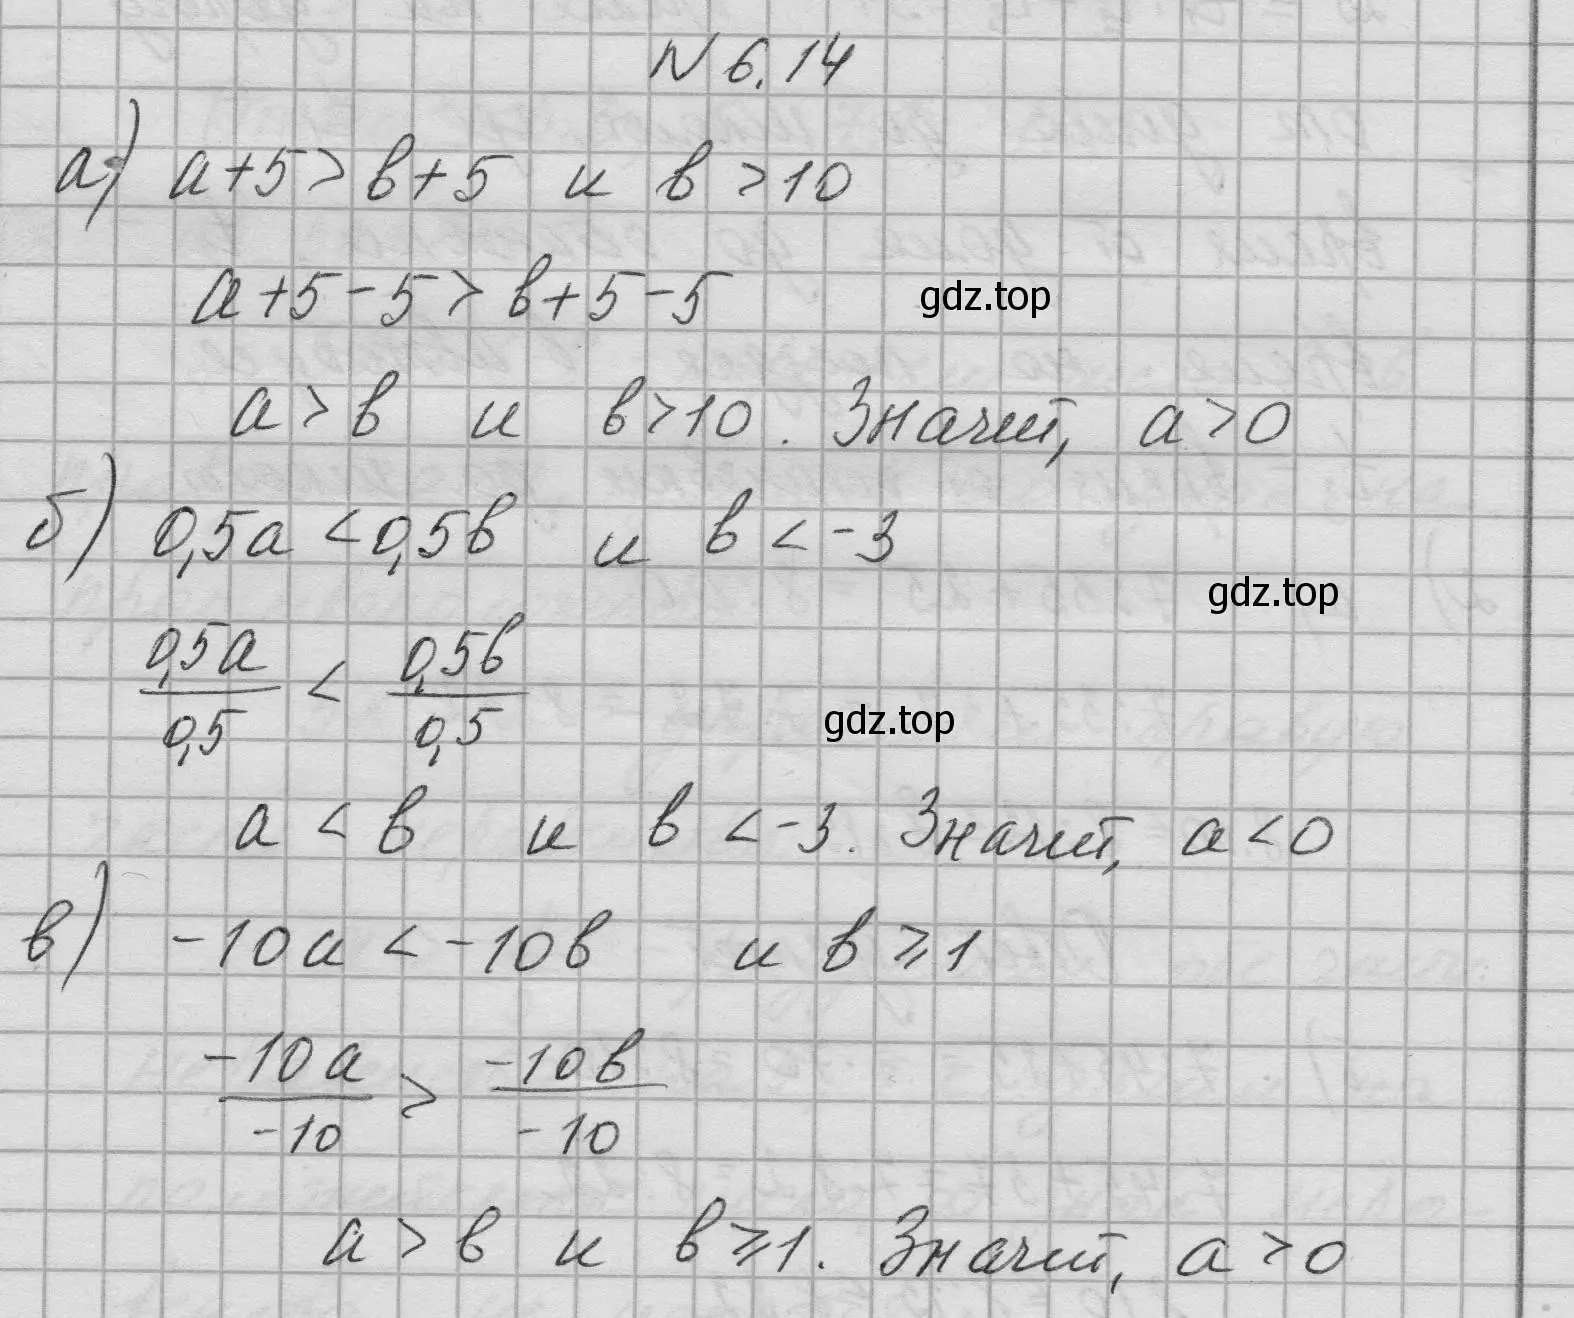 N 6.14
а) a+5>в+5 и в>10
a+5-5>в+5-5
gdz.top
a>в и в>10. Значит, a>0
б) 0,5a<0,5в и в<-3
gdz.top
0,5a/0,5 < 0,5в/0,5
gdz.top
a<в и в<-3. Значит, a<0
в) -10a<-10в и в⩾1
-10a/-10 > -10в/-10
a>в и в⩾1. Значит, a>0